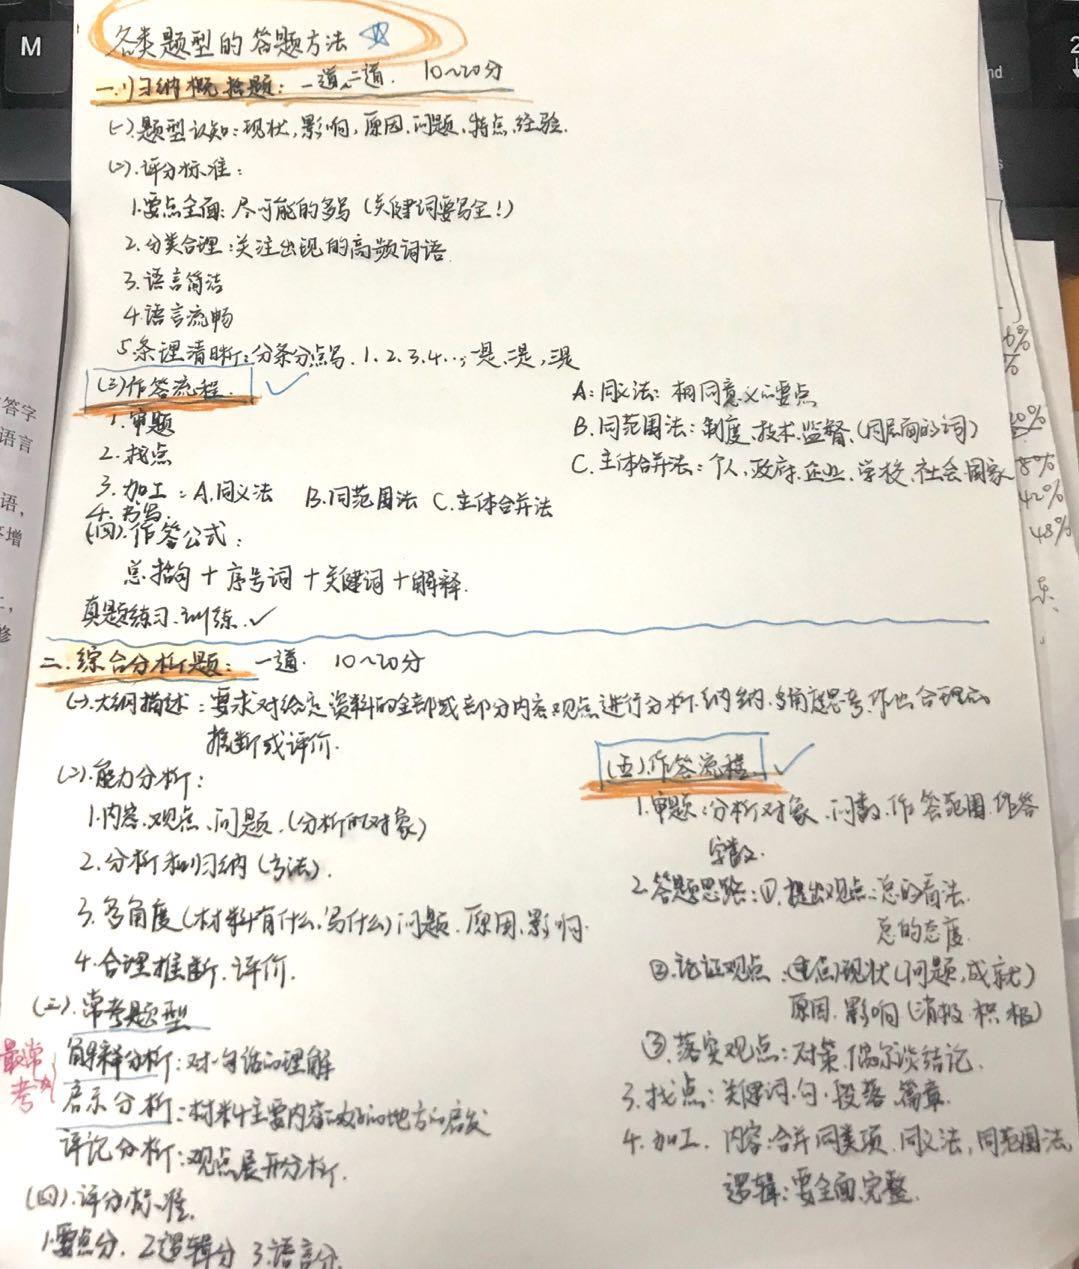 M
各类题型的答题方法
一.归纳概括题：一道、二道. 10~20分
(一).题型认知：现状,影响,原因.问题.特点.经验.
(二).评分标准：
1.要点全面：尽可能的多写(关键词要写全!)
2.分类合理：关注出现的高频词语.
3.语言简洁
4.语言流畅
5.条理清晰：分条分点写.1、2、3、4...；一是、二是、三是
(三)作答流程.
1.审题
2.找点
3.加工：A.同义法 B.同范围法 C.主体合并法
4.书写.
A：同义法：相同意义的要点
B.同范围法：制度、技术、监督.(同层面的词)
C.主体合并法：个人、政府、企业、学校、社会、国家
(四).作答公式：
总括句+序号词+关键词+解释.
真题练习.训练.✓
二.综合分析题：一道. 10~20分
(一).大纲描述：要求对给定资料的全部或部分内容、观点进行分析.归纳.多角度思考.作出合理的
推断或评价.
(二).能力分析：
1.内容.观点.问题.(分析的对象)
2.分析和归纳(方法).
3.多角度(材料有什么.写什么)问题.原因.影响.
4.合理推断.评价.
(三).常考题型
最常考
解释分析：对一句话的理解
启示分析：材料主要内容、好的地方的启发
评论分析：观点展开分析.
(四).评分标准.
1.要点分. 2.逻辑分 3.语言分
(五).作答流程.
1.审题：分析对象.问数.作答范围.作答
字数.
2.答题思路：①.提出观点：总的看法.
总的态度.
②.论证观点：(重点)现状(问题,成就)
原因.影响(消极.积极)
③.落实观点：对策.偶尔谈结论.
3.找点：关键词.句.段落.篇章.
4.加工.内容：合并同类项.同义法,同范围法
逻辑：要全面.完整.
答字
语言
语,
增
修
20%
8%
42%
48%